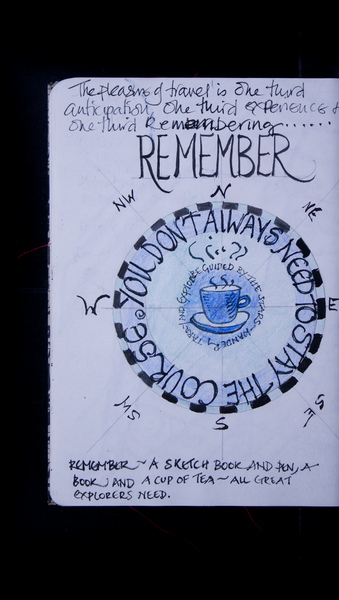 The pleasure of travel is one third
anticipation, one third experience &
one third Remembering......
REMEMBER
N
NE
E
SE
S
SW
W
NW
YOU DON'T ALWAYS NEED TO STAY THE COURSE
EXPLORE GUIDED BY THE STARS - WANDER
REMEMBER ~ A SKETCH BOOK AND PEN, A
BOOK AND A CUP OF TEA ~ ALL GREAT
EXPLORERS NEED.